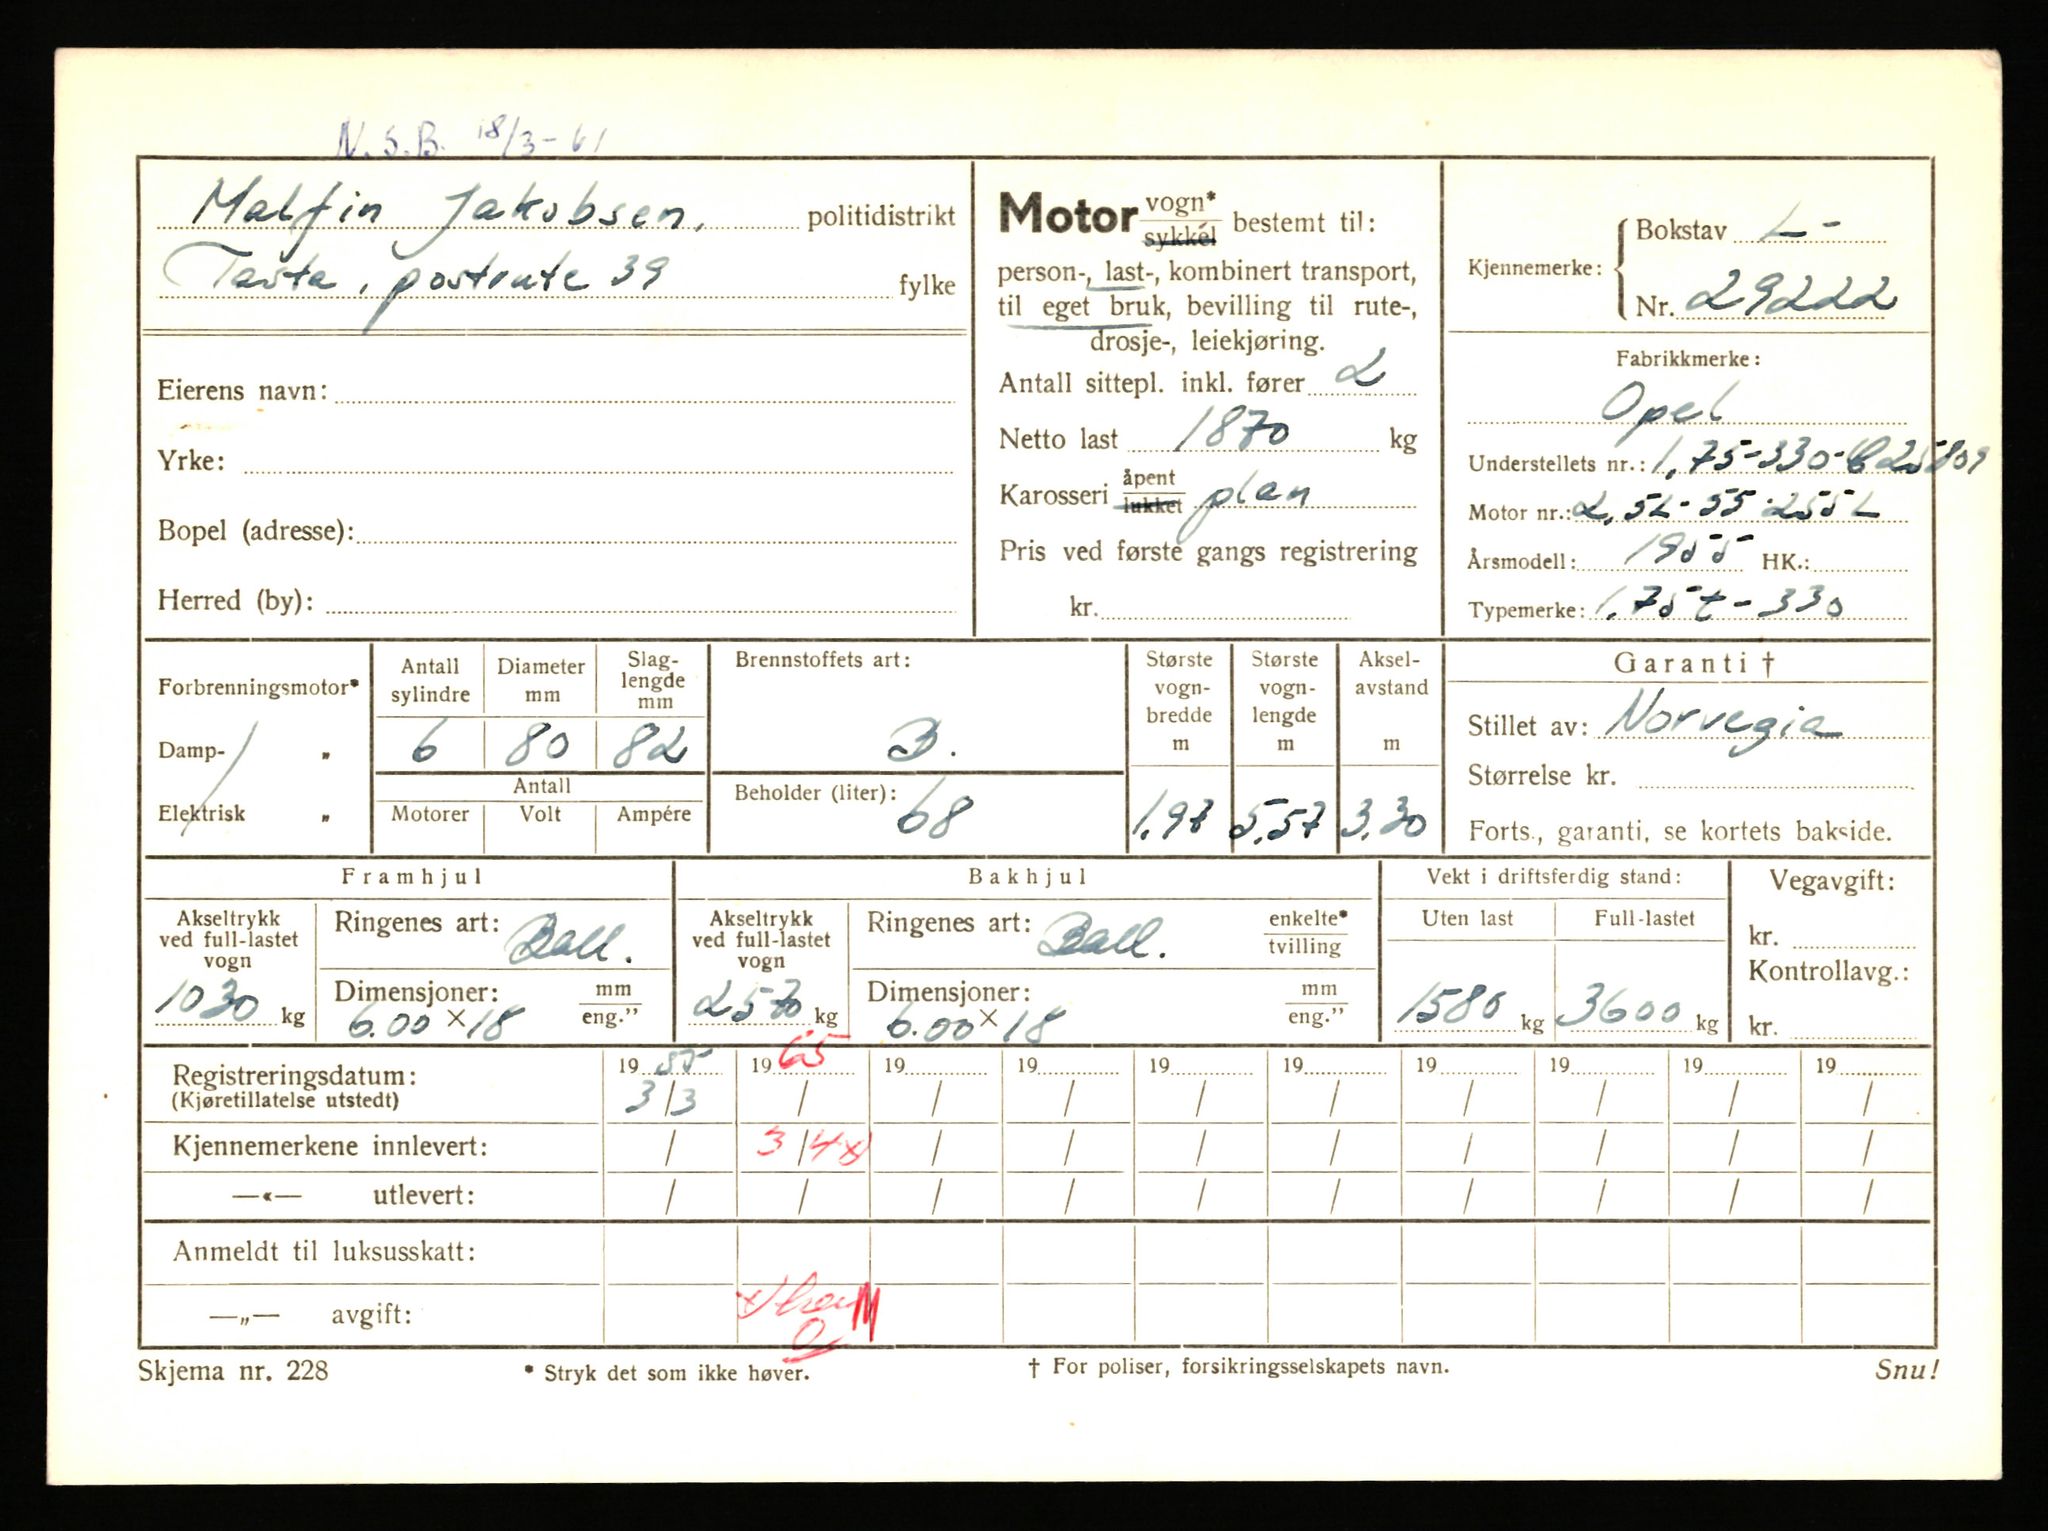 N.S.B. 18/3-61
Malfin Jakobsen, politidistrikt
Tasta, postrute 39 fylke
Eierens navn:
Yrke:
Bopel (adresse):
Herred (by):
Motor vogn* sykkel bestemt til:
person-, last-, kombinert transport,
til eget bruk, bevilling til rute-,
drosje-, leiekjøring.
Antall sittepl. inkl. fører 2
Netto last 1870 kg
Karosseri åpent lukket plan
Pris ved første gangs registrering
kr.
Kjennemerke: Bokstav L-
Nr. 29222
Fabrikkmerke:
Opel
Understellets nr.: 1,75-330-
Motor nr.: 2,5L-55-255L
Årsmodell: 1955 HK.:
Typemerke: 1,75t-330
Forbrenningsmotor*
Damp- „
Elektrisk „
Antall sylindre Diameter mm Slag-lengde mm
6 80 82
Antall
Motorer Volt Ampére
Brennstoffets art:
B.
Beholder (liter): 68
Største vogn-bredde m Største vogn-lengde m Aksel-avstand m
1,97 5,57 3,30
Garanti †
Stillet av: Norvegia
Størrelse kr.
Forts., garanti, se kortets bakside.
Framhjul
Akseltrykk ved full-lastet vogn
1030 kg
Ringenes art: Ball.
Dimensjoner: mm eng."
6.00 x 18
Bakhjul
Akseltrykk ved full-lastet vogn
2570 kg
Ringenes art: Ball. enkelte* tvilling
Dimensjoner: mm eng."
6.00 x 18
Vekt i driftsferdig stand:
Uten last Full-lastet
1580 kg 3600 kg
Vegavgift:
kr.
Kontrollavg.:
kr.
Registreringsdatum: 19 55 19 65 19 19 19 19 19 19 19 19
(Kjøretillatelse utstedt) 3/3 / / / / / / / / /
Kjennemerkene innlevert: / 3/4 x) / / / / / / / /
—«— utlevert: / / / / / / / / / /
Anmeldt til luksusskatt:
—„— avgift:
Skjema nr. 228 * Stryk det som ikke høver. † For poliser, forsikringsselskapets navn. Snu!